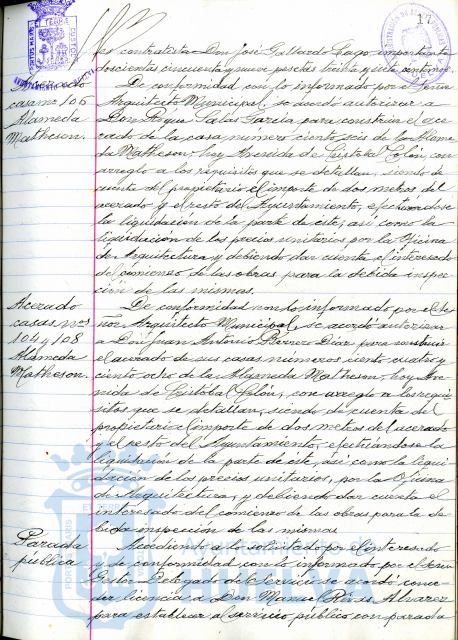 17
por contratista Don José Gallardo Lago, importante
doscientas cincuenta y nueve pesetas treinta y siete céntimos.
Acerado
casa nº 106
Alameda
Matheson.
De conformidad con lo informado por el Señor
Arquitecto Municipal, se acordó autorizar a
Don Roque Salas García para construir el ace-
rado de la casa número ciento seis de la Alame-
da Matheson, hoy Avenida de Cristobal Colón, con
arreglo a los requisitos que se detallan, siendo de
cuenta del propietario el importe de dos metros del
acerado y el resto del Ayuntamiento, efectuándose
la liquidación de la parte de éste, así como la
liquidación de los precios unitarios por la Oficina
de Arquitectura, y debiendo dar cuenta el interesado
del comienzo de las obras para la debida inspec-
ción de las mismas.
Acerado
casas nos
104 y 108
Alameda
Matheson.
De conformidad con lo informado por el Se-
ñor Arquitecto Municipal, se acordó autorizar
a Don Juan Antonio Borrero Díaz para construir
el acerado de sus casas números ciento cuatro y
ciento ocho de la Alameda Matheson, hoy Ave-
nida de Cristobal Colón, con arreglo a los requi-
sitos que se detallan, siendo de cuenta del
propietario el importe de dos metros del acerado
y el resto del Ayuntamiento, efectuándose la
liquidación de la parte de éste, así como la liqui-
dación de los precios unitarios, por la Oficina
de Arquitectura, y debiendo dar cuenta el
interesado del comienzo de las obras para la de-
bida inspección de las mismas
Parada
pública
Accediendo a lo solicitado por el interesado
y de conformidad con lo informado por el Señor
Gestor Delegado del Servicio se acordó conce-
der licencia a Don Manuel Rivas Alvarez
para establecer al servicio público con parada
Ayuntamiento de